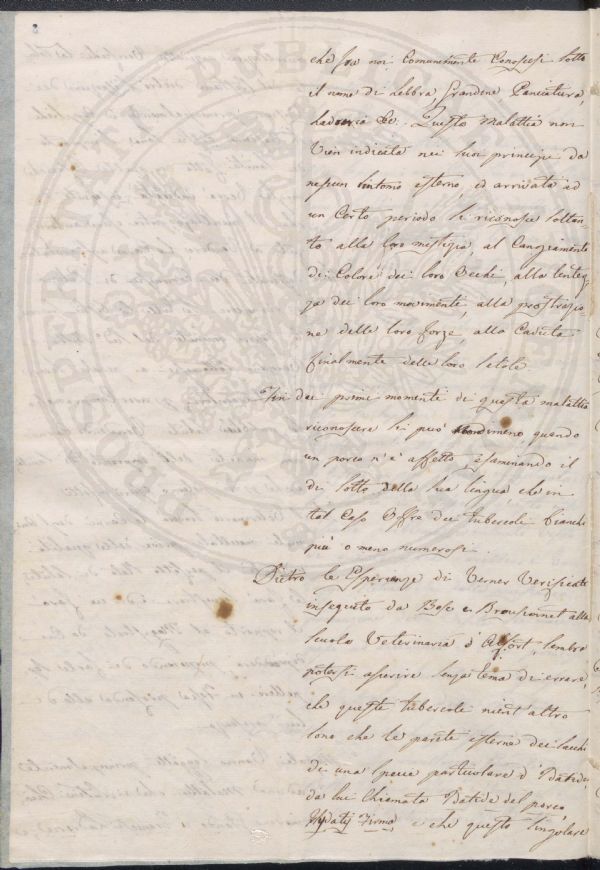 che fra noi Comunemente Conoscesi sotto
il nome di lebbra, Grandine Panicatura,
Ladreria &c. Questa malattia non
Vien indicata nei suoi principj da
nessun sintomo esterno, ed arrivata ad
un Certo periodo si riconosce soltan-
to alla loro mestizia, al Cangiamento
di Colore dei loro Occhi, alla lentez-
za dei loro movimenti, alla prostrazio-
ne delle loro forze, alla Caduta
finalmente delle loro Setole.
Fin dai primi momenti di questa malattia
riconoscere si può nondimeno quando
un porco n'è affetto, esaminando il
di sotto della sua lingua, che in
tal Caso Offre dei tubercoli bianchi
più o meno numerosi.
Dietro le Esperienze di Verner Verificate
inseguito da Bosc e Brousonnet alla
scuola Veterinaria d'Alfort, sembra
potersi asserire senza tema di errare,
che queste tubercole nient'altro
sono che le parete esterne dei sacchi
di una specie particolare d'Idatide,
da lui Chiamata Idatide del porco,
Hydatis Finna e che questo singolare